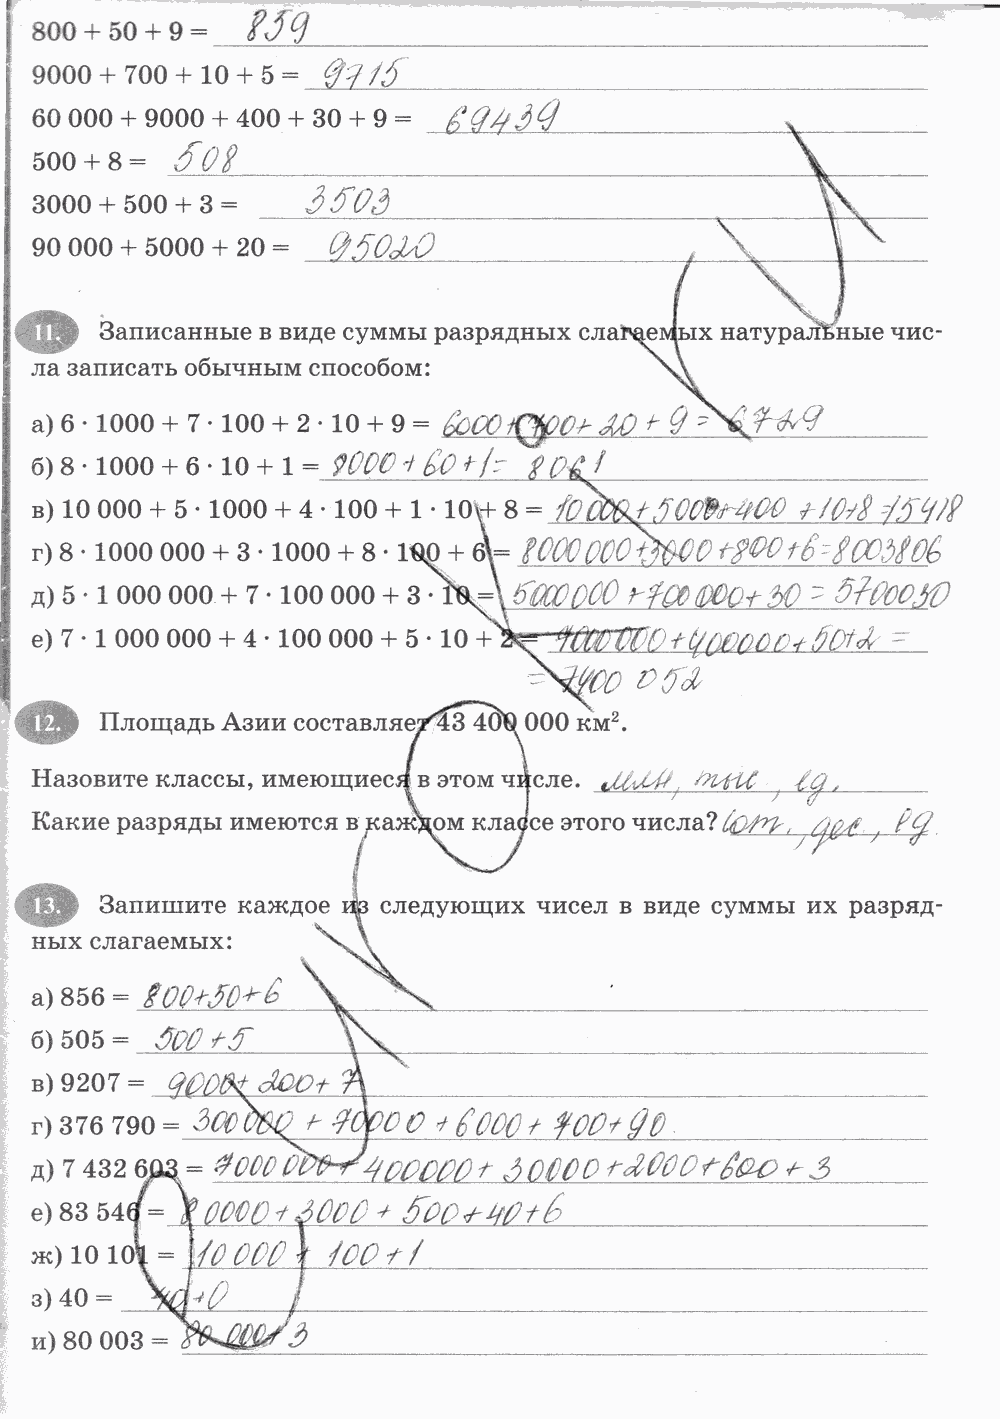 800 + 50 + 9 = 859
9000 + 700 + 10 + 5 = 9715
60 000 + 9000 + 400 + 30 + 9 = 69439
500 + 8 = 508
3000 + 500 + 3 = 3503
90 000 + 5000 + 20 = 95020
11. Записанные в виде суммы разрядных слагаемых натуральные чис-
ла записать обычным способом:
а) 6 · 1000 + 7 · 100 + 2 · 10 + 9 = 6000+700+20+9= 6729
б) 8 · 1000 + 6 · 10 + 1 = 8000+60+1= 8061
в) 10 000 + 5 · 1000 + 4 · 100 + 1 · 10 + 8 = 10000+5000+400 +10+8=15418
г) 8 · 1000 000 + 3 · 1000 + 8 · 100 + 6 = 8000000+3000+800+6=8003806
д) 5 · 1 000 000 + 7 · 100 000 + 3 · 10 = 5000000+700000+30 = 5700030
е) 7 · 1 000 000 + 4 · 100 000 + 5 · 10 + 2 = 7000000+400000+50+2 =
= 7400 052
12. Площадь Азии составляет 43 400 000 км².
Назовите классы, имеющиеся в этом числе. млн, тыс, ед.
Какие разряды имеются в каждом классе этого числа? сот., дес., ед
13. Запишите каждое из следующих чисел в виде суммы их разряд-
ных слагаемых:
а) 856 = 800+50+6
б) 505 = 500+5
в) 9207 = 9000+200+7
г) 376 790 = 300000 + 70000 + 6000 + 700+90
д) 7 432 603 = 7000000+400000+30000+2000+600+3
е) 83 546 = 80000+3000+500+40+6
ж) 10 101 = 10000 + 100+1
з) 40 = 40+0
и) 80 003 = 80 000+3